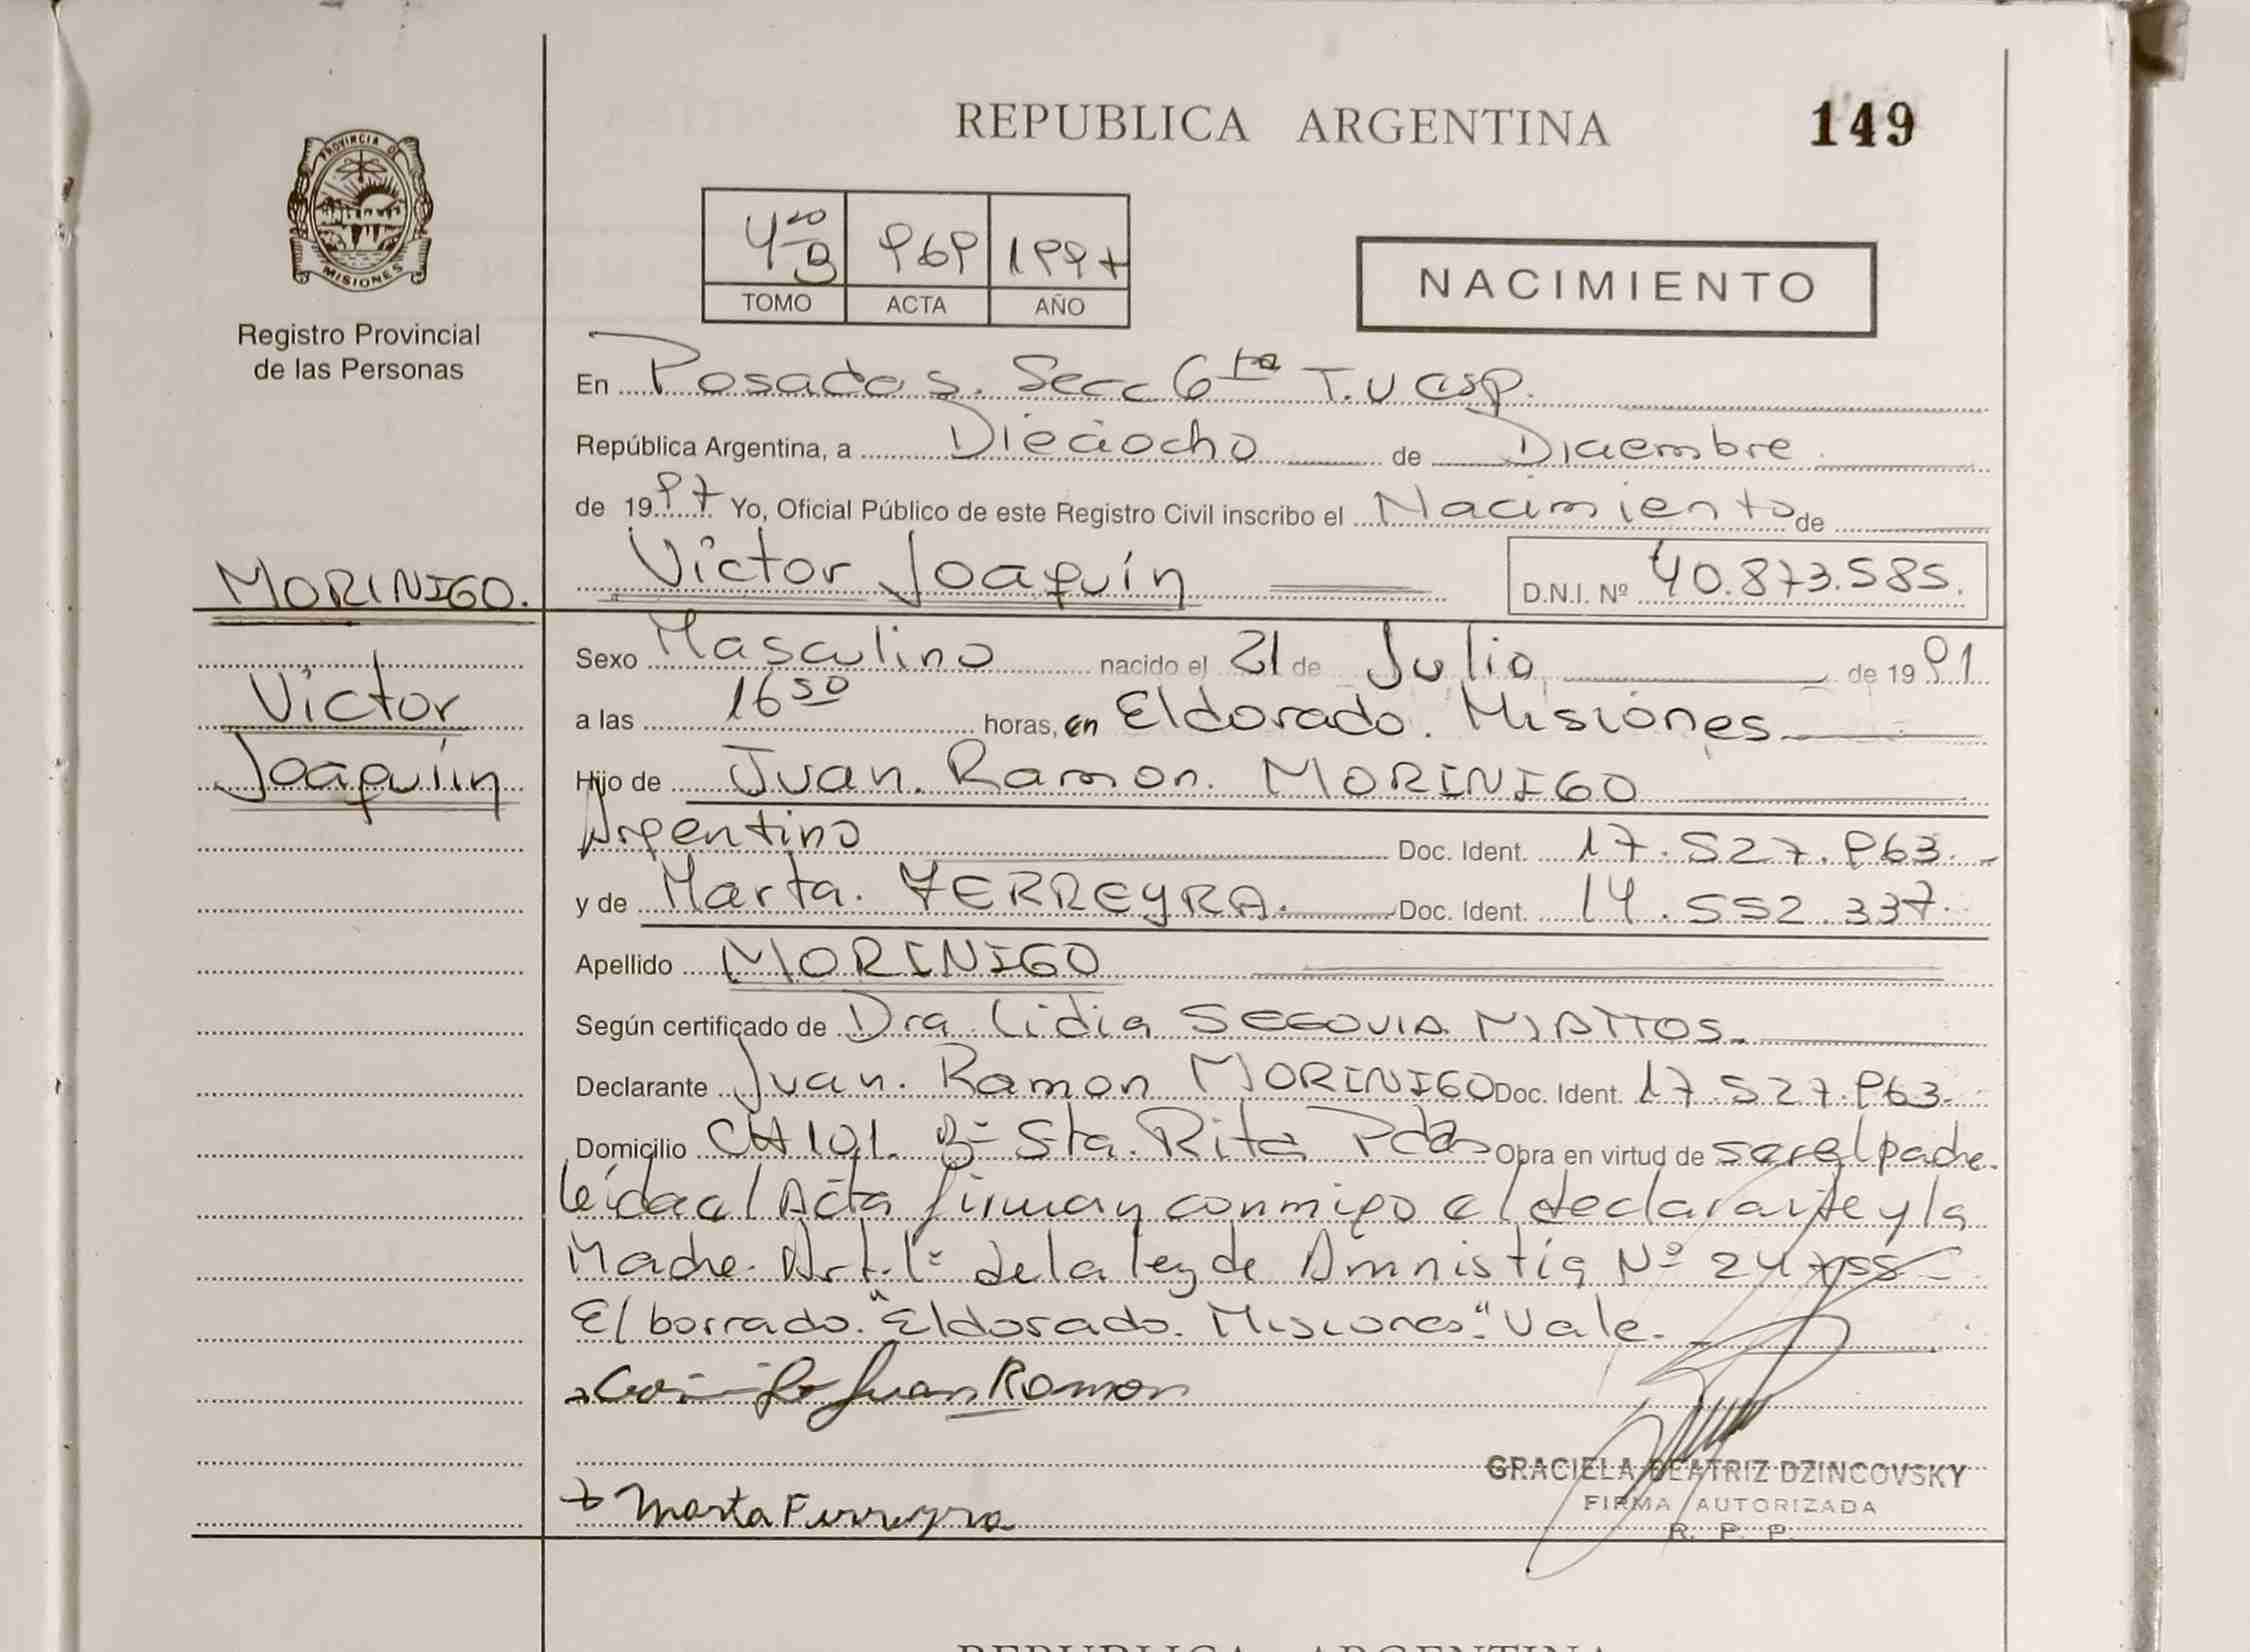 REPUBLICA ARGENTINA
149
PROVINCIA DE
MISIONES
Registro Provincial
de las Personas
4to B 969 1997
TOMO ACTA AÑO
NACIMIENTO
En Posadas. Secc 6ta T.V
República Argentina, a Dieciocho de Diciembre
de 1997 Yo, Oficial Público de este Registro Civil inscribo el Nacimiento de
MORINIGO.
Victor Joaquín D.N.I. Nº 40.873.585.
Victor
Joaquín
Sexo Masculino nacido el 21 de Julio de 1991
a las 16 50 horas, en Eldorado. Misiones
Hijo de Juan. Ramon. MORINIGO
Argentino Doc. Ident. 17.527.963.
y de Marta. FERREYRA. Doc. Ident. 14.552.337.
Apellido MORINIGO
Según certificado de Dra Lidia SEGOVIA MATTOS.
Declarante Juan. Ramon MORINIGO Doc. Ident. 17.527.963.
Domicilio CH 101. Bº Sta. Rita Pdas Obra en virtud de ser el padre.
leída el Acta firman conmigo el declarante y la
Madre. Art. 1º de la ley de Amnistía Nº 24755
El borrado. "Eldorado. Misiones". Vale.
Juan Ramon
GRACIELA BEATRIZ DZINCOVSKY
FIRMA AUTORIZADA
R. P. P.
Marta Ferreyra
REPUBLICA ARGENTINA